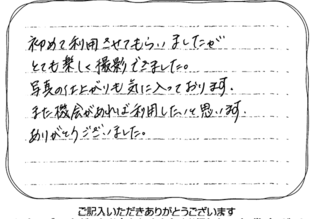 初めて利用させてもらいましたが
とても楽しく撮影できました。
写真の仕上がりも気に入っております。
また機会があれば利用したいと思います。
ありがとうございました。
ご記入いただきありがとうございます